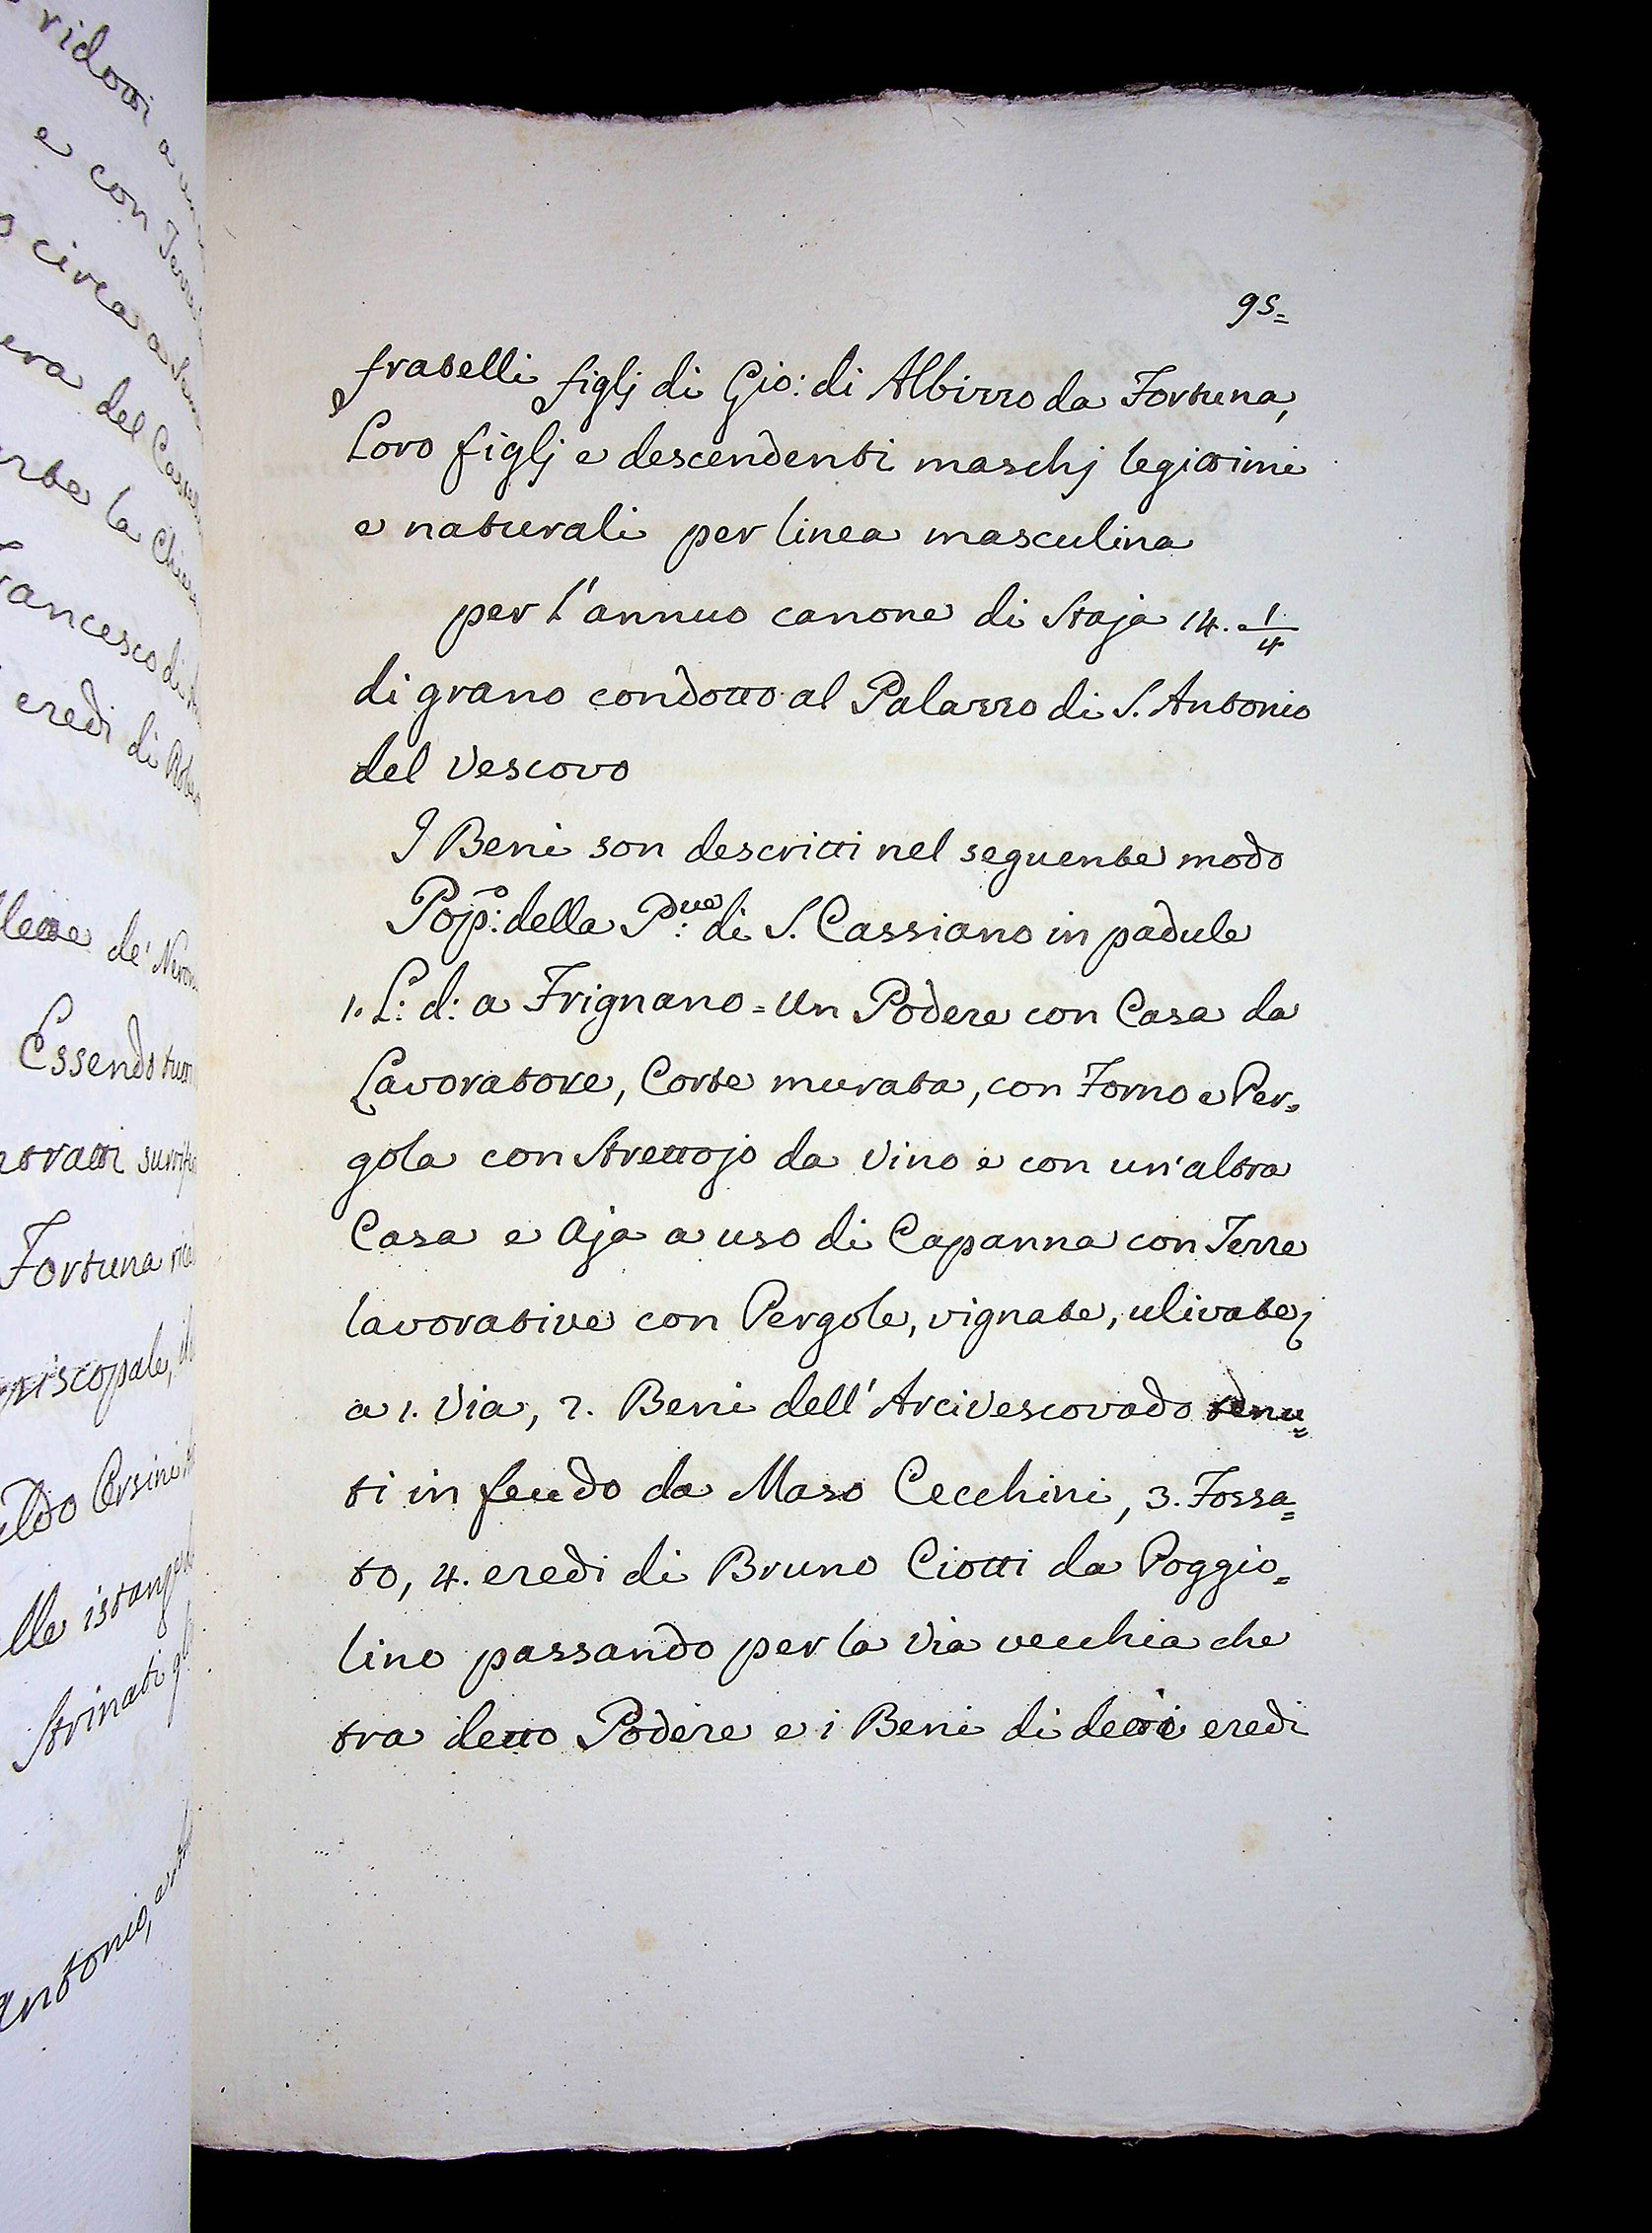 95=
fratelli figlj di Gio: di Albizzo da Fortuna,
Loro figlj e descendenti maschj legittimi
e naturali per linea masculina
per l'annuo canone di Staja 14. 1/4
di grano condotto al Palazzo di S. Antonio
del Vescovo
I Beni son descritti nel seguente modo
Popo: della P:ve di S. Cassiano in padule
1. L: d: a Frignano = Un Podere con Casa da
Lavoratore, Corte murata, con Forno e Per=
gola con Strettojo da Vino e con un'altra
Casa e Aja a uso di Capanna con Terre
lavorative con Pergole, vignate, ulivate,
a 1. Via, 2. Beni dell'Arcivescovado tenu=
ti in feudo da Maso Cecchini, 3. Fossa=
to, 4. eredi di Bruno Ciotti da Poggio=
lino passando per la Via vecchia che
tra detto Podere e i Beni di detti eredi
ridotti a
e con
circa a
del
la
di
eredi di
de'
Essendo
Fortuna
Strinati